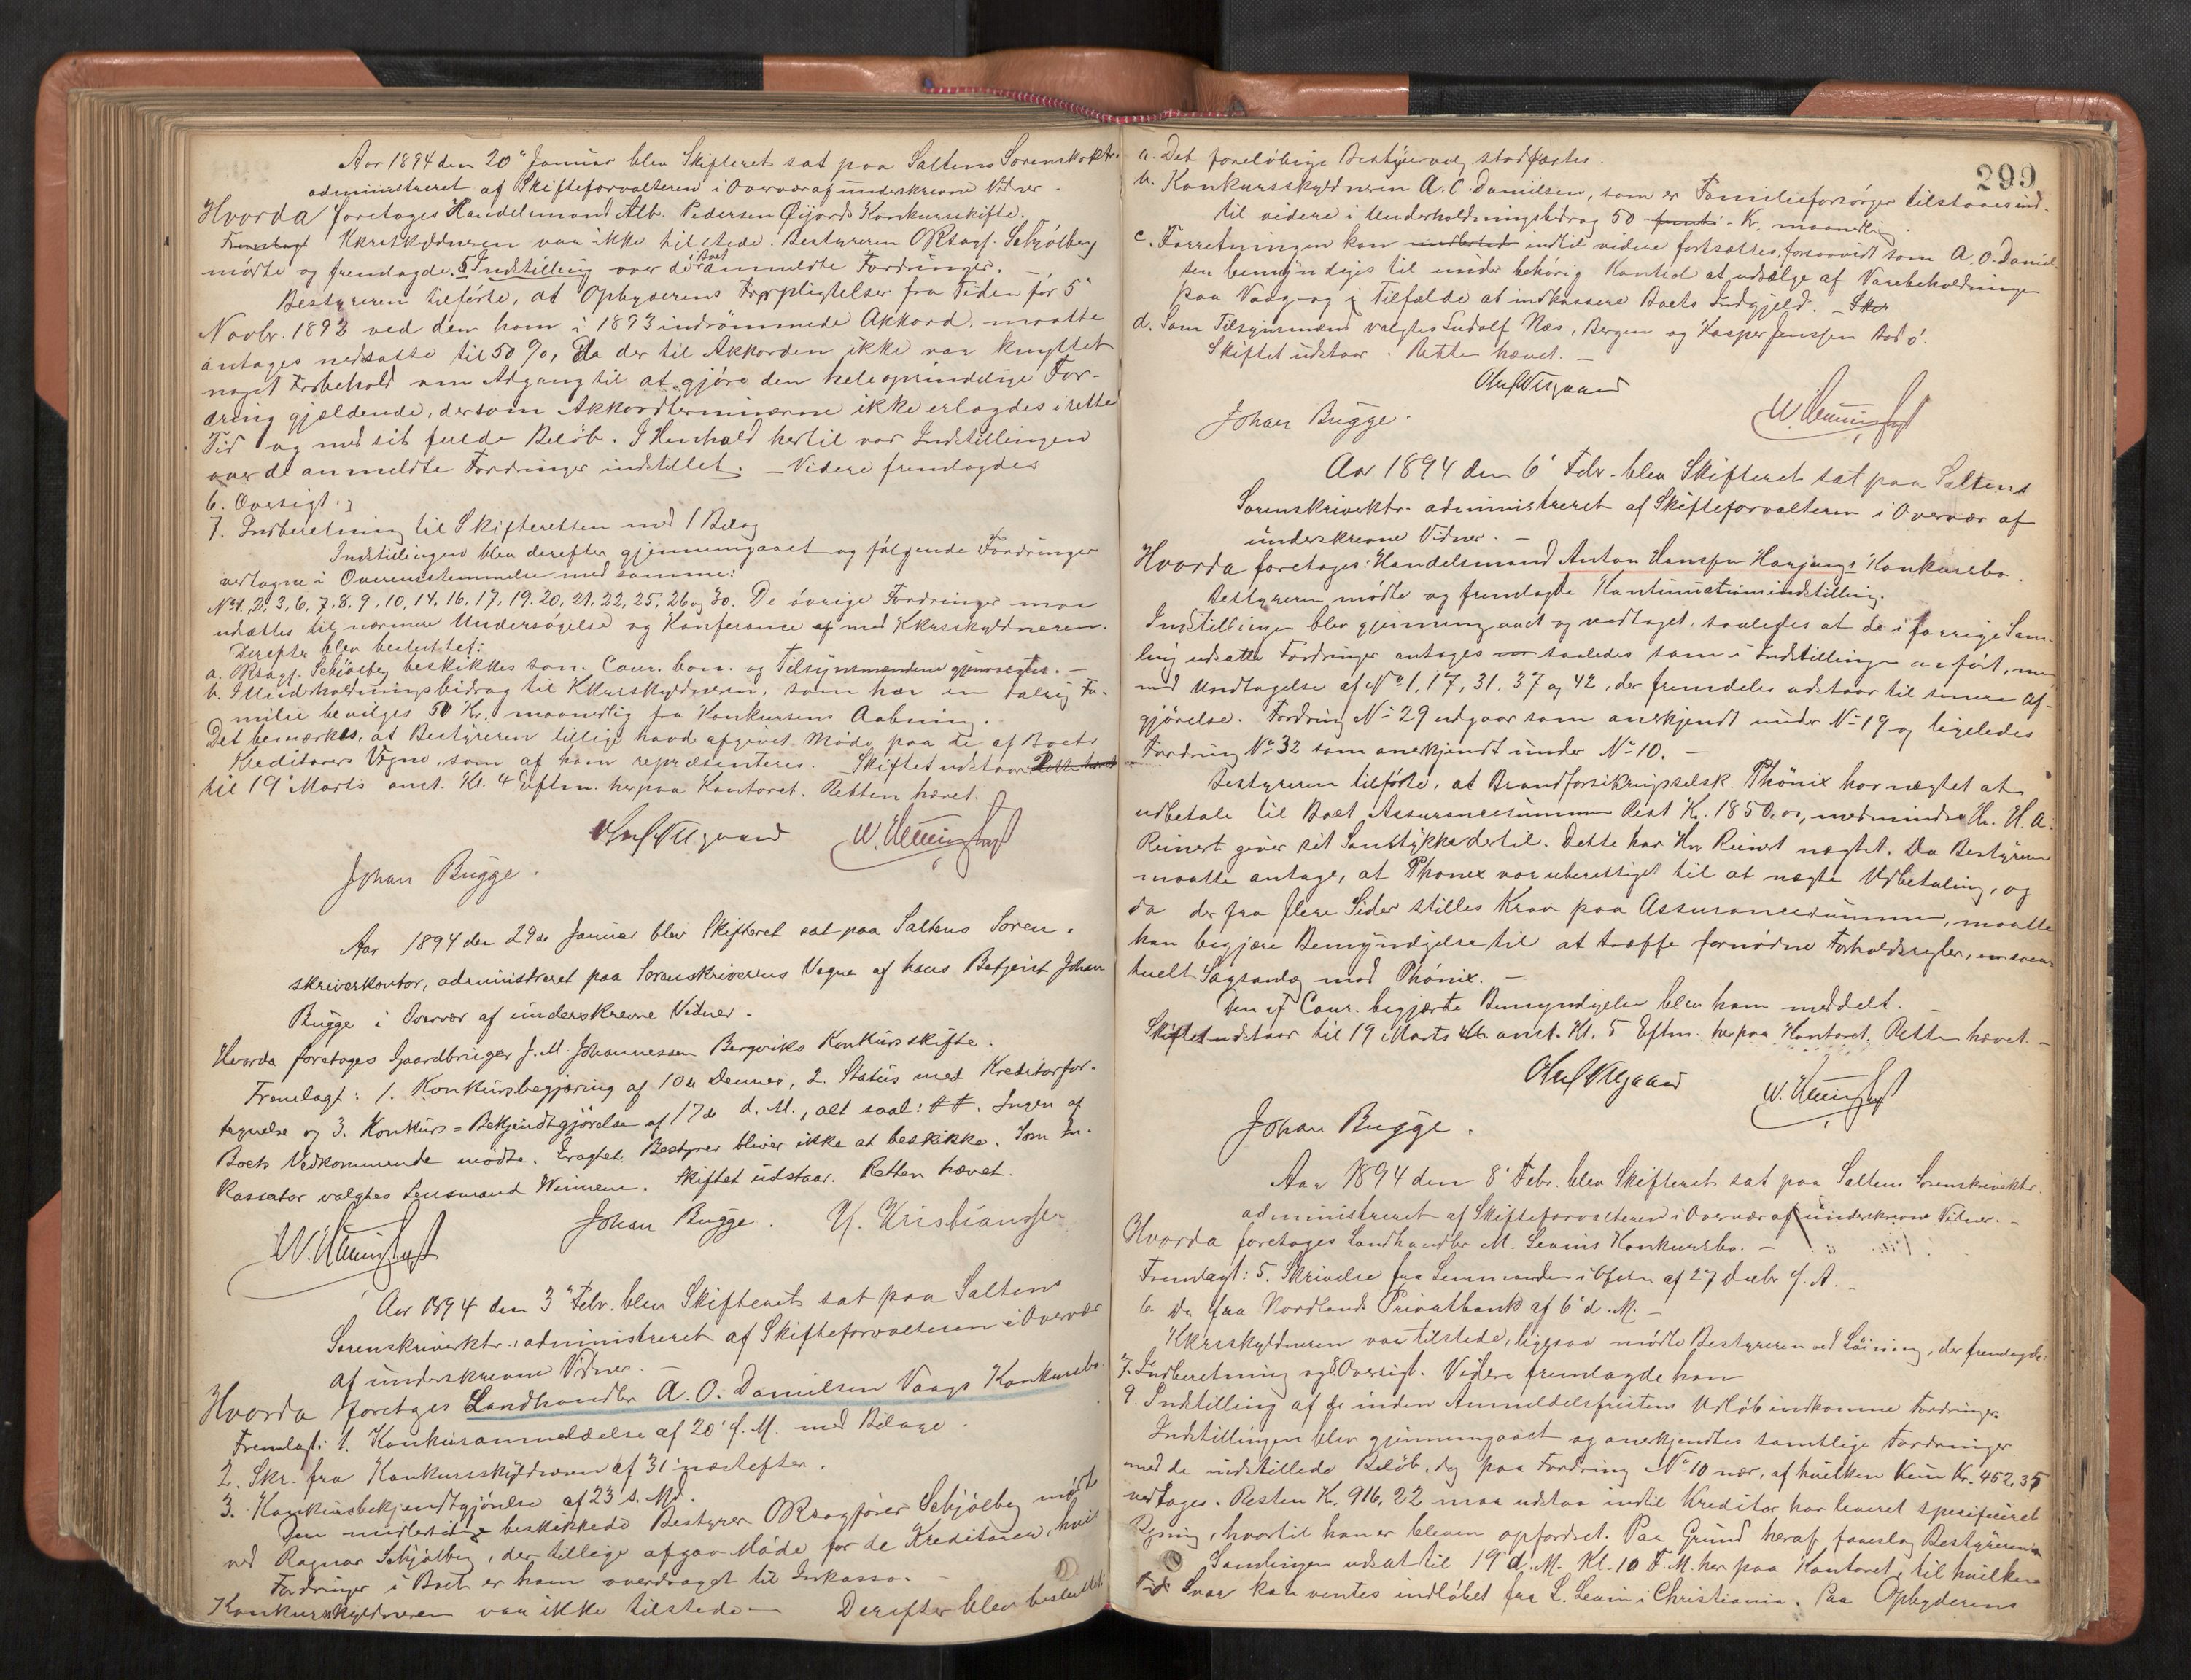 Aar 1894 den 20' Januar blev Skifteret sat paa Saltens Sorenskrktr.
administreret af Skifteforvalteren i Overvær af underskrevne Vidner.
Hvorda foretoges Handelsmand Alb. Pedersen Öijords Konkursskifte.
Fremlagt Kkrsskyldneren var ikke tilstede. Bestyreren ORsagf. Schjölberg
mödte og fremlagde 5 Indstilling over de i Boet anmeldte Fordringer.
Bestyreren tilförte, at Opbyderens Forpligtelser fra Tiden för 5'
Novbr. 1892 ved den ham i 1893 indrömmede Akkord, maatte
antages nedsatte til 50 %, da der til Akkorden ikke var knyttet
noget Forbehold om Adgang til at gjöre den hele oprindelige For-
dring gjældende, dersom Akkordterminerne ikke erlagdes i rette
Tid og med sit fulde Belöb. I Henhold hertil var Indstillingen
over de anmeldte Fordringer indstillet. - Videre fremlagdes
6. Oversigt.
7. Indberetning til Skifteretten med 1 Bilag
Indstillingen blev derefter gjennemgaaet og fölgende Fordringer
vedtagne i Overensstemmelse med samme:
No 1, 2, 3, 6, 7, 8, 9, 10, 14, 16, 17, 19, 20, 21, 22, 25, 26 og 30. De övrige Fordringer maa
udsættes til nærmere Undersögelse og Konferance af med Kkrsskyldneren.
Derefter blev besluttet:
a. ORsagf. Schjölberg beskikkes som Cour. bon. og Tilsynsmændene gjenvælges. -
b. I Underholdningsbidrag til Kkursskyldneren, som har en talrig Fa-
milie bevilges 50 Kr. maanedlig fra Konkursens Aabning.
Det bemærkes, at Bestyreren tillige havde afgivet Möde paa de af Boets
Kreditorers Vegne, som af ham repræsenteres. Skiftet udstaar Retten hævet
til 19' Marts anst. Kl. 4 Eftm. her paa Kontoret. Retten hævet.
Johan Bugge.
Aar 1894 den 29de Januar blev Skifteret sat paa Saltens Soren-
skriverkontor, administreret paa Sorenskriverens Vegne af hans Betjent Johan
Bugge i Overvær af underskrevne Vidner.
Hvorda foretoges Gaardbruger J. M. Johannessen Bergviks Konkursskifte.
Fremlagt: 1. Konkursbegjæring af 10de Dennes, 2. Status med Kreditorfor-
tegnelse og 3. Konkurs-Bekjendtgjörelse af 17de d. M., alt saal: ##. Ingen af
Boets Vedkommende mödte. Eragtet: Bestyrer bliver ikke at beskikke. Som In-
kassator valgtes Lensmand Weinem. Skiftet udstaar. Retten hævet.
Johan Bugge. H. Kristianssen
Aar 1894 den 3' Febr. blev Skifteret sat paa Saltens
Sorenskriverktr., administreret af Skifteforvalteren i Overvær
af underskrevne Vidner. -
Hvorda foretoges Landhandler A. O. Danielsen Vaags Konkursbo.
Fremlagt: 1. Konkursanmeldelse af 20' f. M. med Bilage.
2. Skr. fra Konkursskyldneren af 31' næstefter.
3. Konkursbekjendtgjörelse af 23 s. Md.
Den midlertidige beskikkede Bestyrer ORsagförer Schjölberg mödte
ved Ragnar Schjölberg, der tillige afgav Möde for de Kreditorer, hvis
Fordringer i Boet er ham overdraget til Inkasso. -
Konkursskyldneren var ikke tilstede - Derefter blev besluttet:
299
a. Det foreløbige Bestyrervalg stadfæstes.
b. Konkursskyldneren A. O. Danielsen, som er Familieforsörger tilstaaes ind-
til videre i Underholdningsbidrag 50 - femti - Kr. maanedlig.
c. Forretningen kan midlertid indtil videre fortsættes, forsaavidt som A. O. Daniel-
sen bemyndiges til under behörig Kontrol at udsælge af Varebeholdningen
paa Vaag og i Tilfælde at indkassere Boets Indgjeld. - Skr
d. Som Tilsynsmænd valgtes Ludolf Næs, Bergen og Kasper Jenssen Bodö.
Skiftet udstaar. Retten hævet. -
Johan Bugge.
Aar 1894 den 6' Febr. blev Skifteret sat paa Saltens
Sorenskriverktr. administreret af Skifteforvalteren i Overvær af
underskrevne Vidner. -
Hvorda foretoges: Handelsmand Anton Hansen Harjangs Konkursbo.
Bestyreren mödte og fremlagde Kontinuationsindstilling.
Indstillingen blev gjennemgaaet og vedtaget, saaledes at de i forrige Sam-
ling udsatte Fordringer antages saaledes som i Indstillingen anfört, men
med Undtagelse af No 1, 17, 31, 37 og 42, der fremdeles udstaar til senere Af-
gjörelse. Fordring No 29 udgaar som anerkjendt under No 19 og ligeledes
Fordring No 32 som anerkjendt under No 10. -
Bestyreren tilförte, at Brandforsikringsselsk. Phönix har nægtet at
udbetale til Boet Assurancesummen Rest Kr. 1850,00, medmindre Hr. H. A.
Reinert giver sit Samtykke dertil. Dette har Hr Reinert nægtet. Da Bestyreren
maatte antage, at Phönix var uberettiget til at nægte Udbetaling, og
da der fra flere Sider stilles Krav paa Assurancesummen, maatte
han begjære Bemyndigelse til at træffe fornödne Forholdsregler, even-
tuelt Sagsanlæg mod Phönix. -
Den af Cour. begjærte Bemyndigelse blev ham meddelt.
Skiftet udstaar til 19 Marts anst. Kl. 5 Eftm. her paa Kontoret. Retten hævet. -
Johan Bugge.
Aar 1894 den 8' Febr. blev Skifteret sat paa Saltens Sorenskriverktr.
administreret af Skifteforvalteren i Overvær af underskrevne Vidner. -
Hvorda foretoges Landhandler M. Levins Konkursbo. -
Fremlagt: 5. Skrivelse fra Lensmanden i Ofoten af 27 Decbr f. A. -
6. Do fra Nordlands Privatbank af 6' d. M. -
Kkrsskyldneren var tilstede, ligesaa mödte Bestyreren ved Löining, der fremlagde:
7. Indberetning og 8 Oversigt. Videre fremlagde han
9. Indstilling af de inden Anmeldelsfristens Udlöb indkomne Fordringer.
Indstillingen blev gjennemgaaet og anerkjendtes samtlige Fordringer
med de indstillede Belöb, dog paa Fordring No 10 nær, af hvilken kun Kr. 452,35
vedtages. Resten Kr. 916,22 maa udstaa indtil Kreditor har leveret specificeret
Regning, hvortil han er bleven opfordret. Paa Grund heraf foreslog Bestyreren
Samlingen udsat til 19' d. M. Kl. 10 F. M. her paa Kontoret, til hvilken
Tid Svar kan ventes indlöbet fra L. Levin i Christiania. Paa Opbyderens